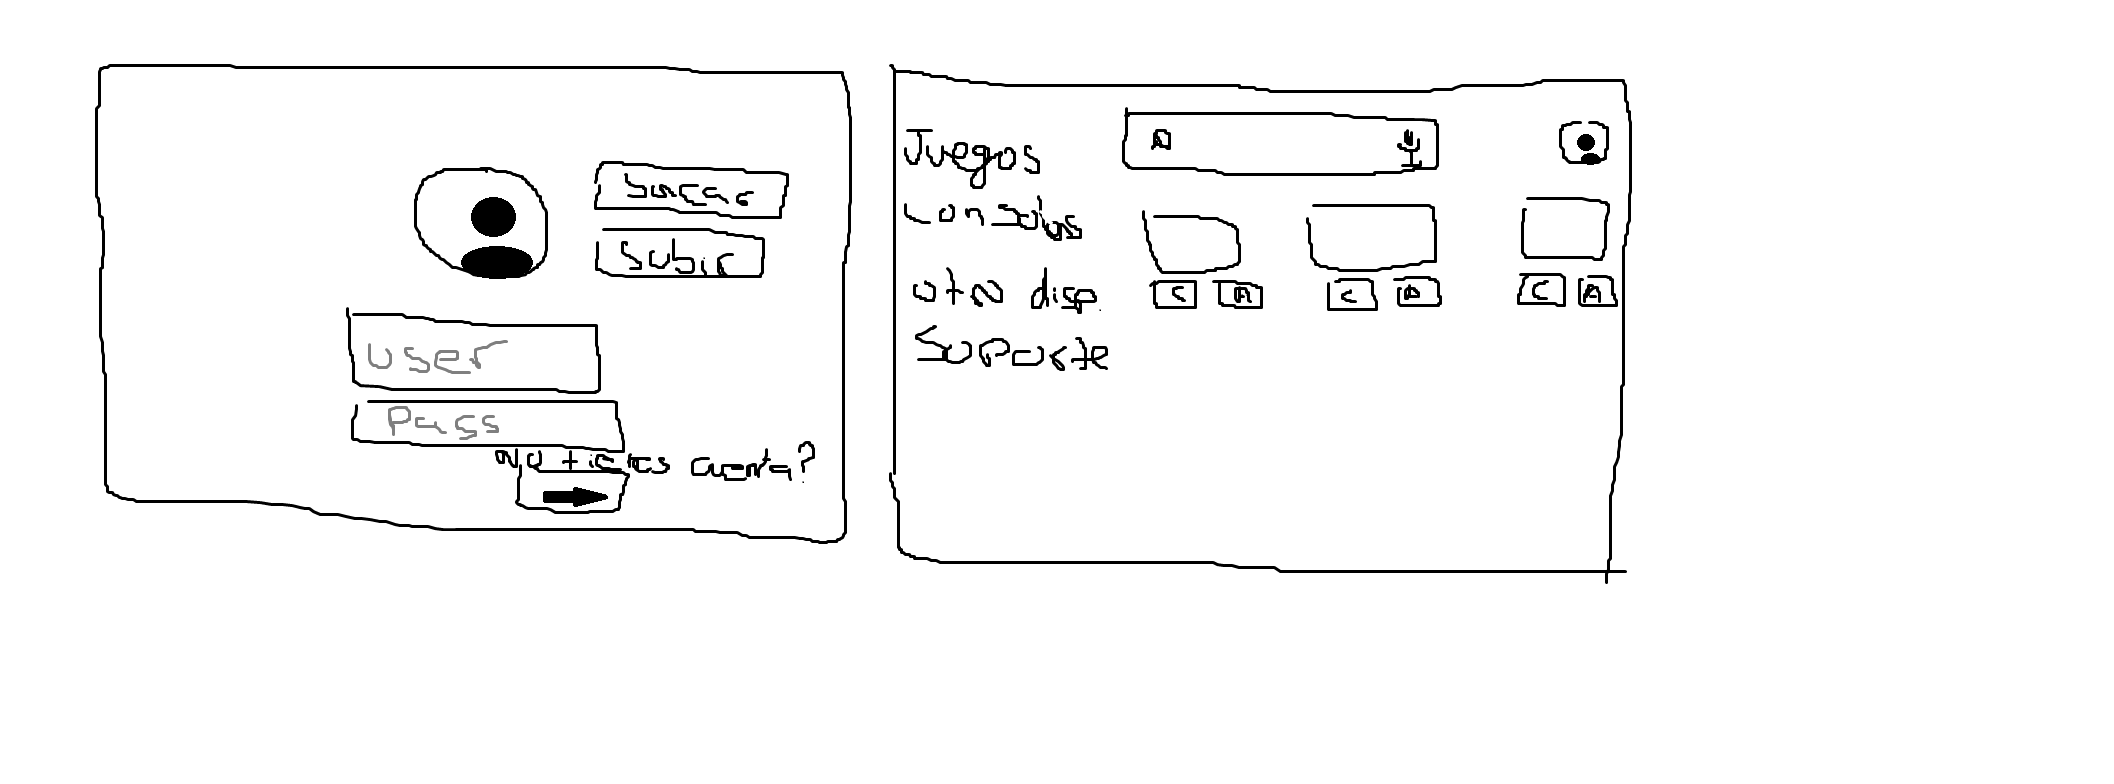 Subir
user
Pass
No tienes cuenta?
Juegos
consolas
otro disp.
Soporte
C A C A C A